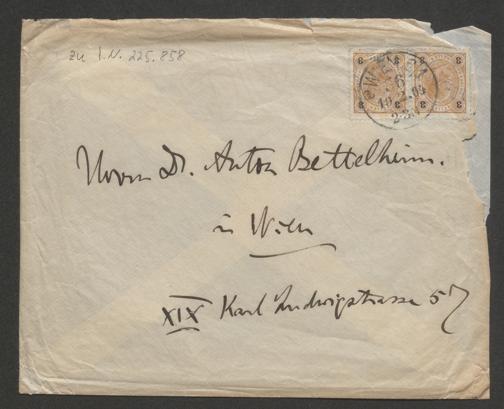 zu I.N. 225.858
3 3 3 3
WIEN
Herrn Dr. Anton Bettelheim.
in Wien
XIX Karl Ludwigstrasse 57